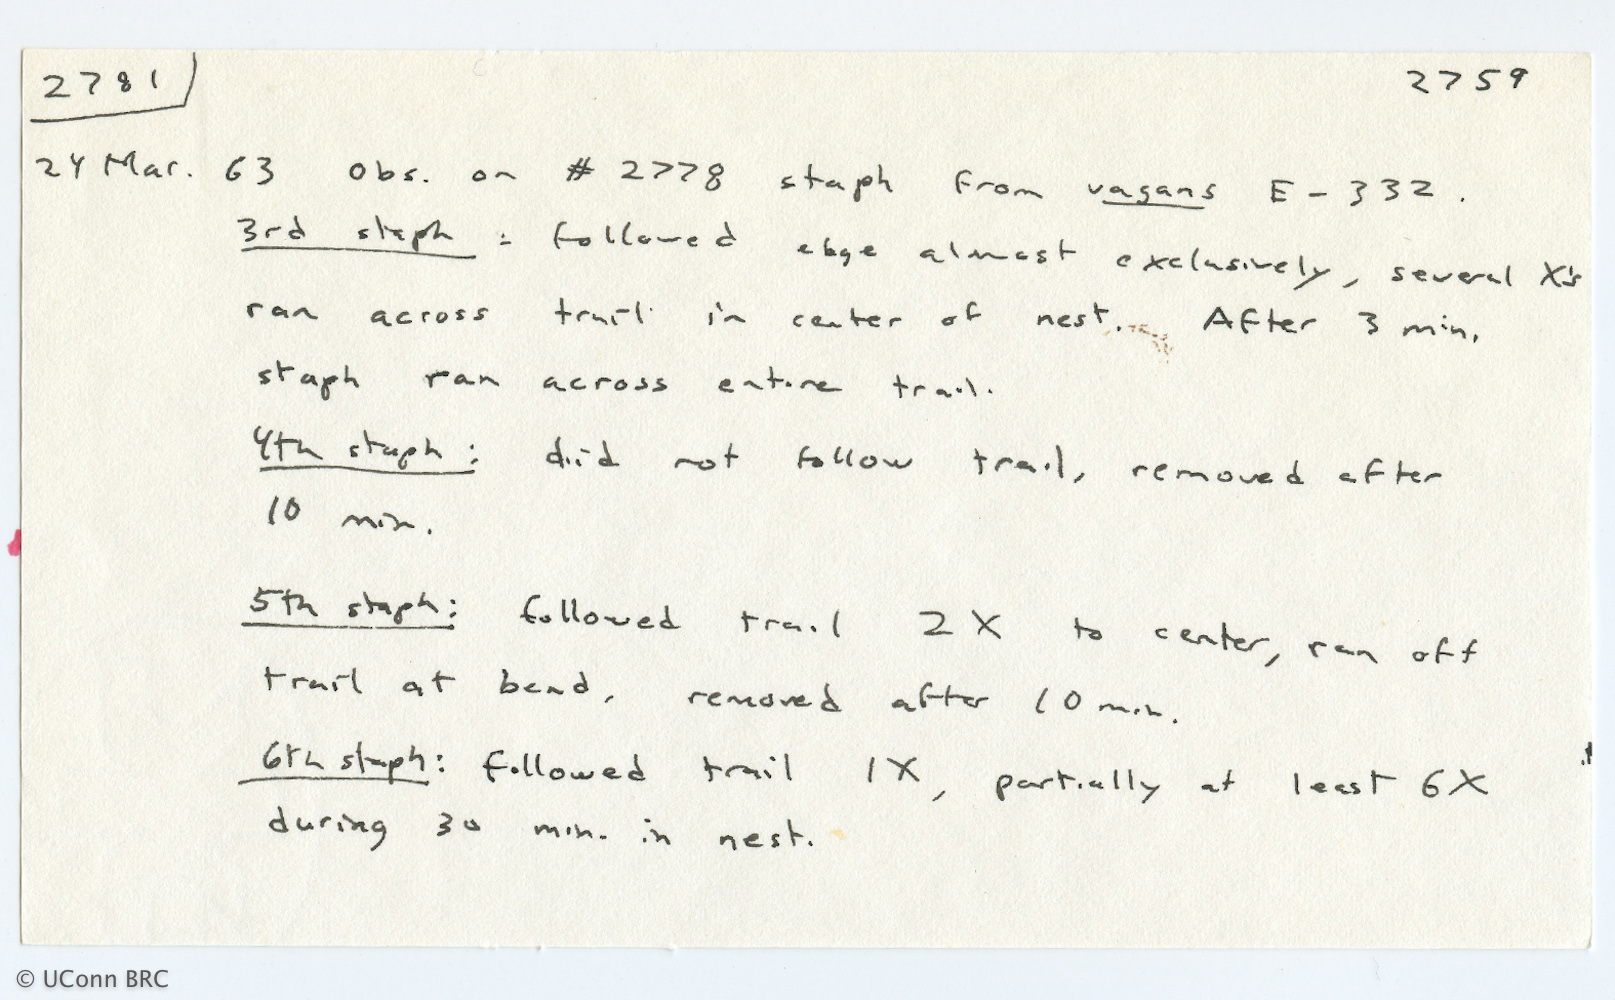 2781 2759
24 Mar. 63 Obs. on # 2778 staph from vagans E-332.
3rd staph: followed edge almost exclusively, several X's
ran across trail in center of nest. After 3 min.
staph ran across entire trail.
4th staph: did not follow trail, removed after
10 min.
5th staph: followed trail 2X to center, ran off
trail at bend, removed after 10 min.
6th staph: followed trail 1X, partially at least 6X
during 30 min. in nest.
© UConn BRC